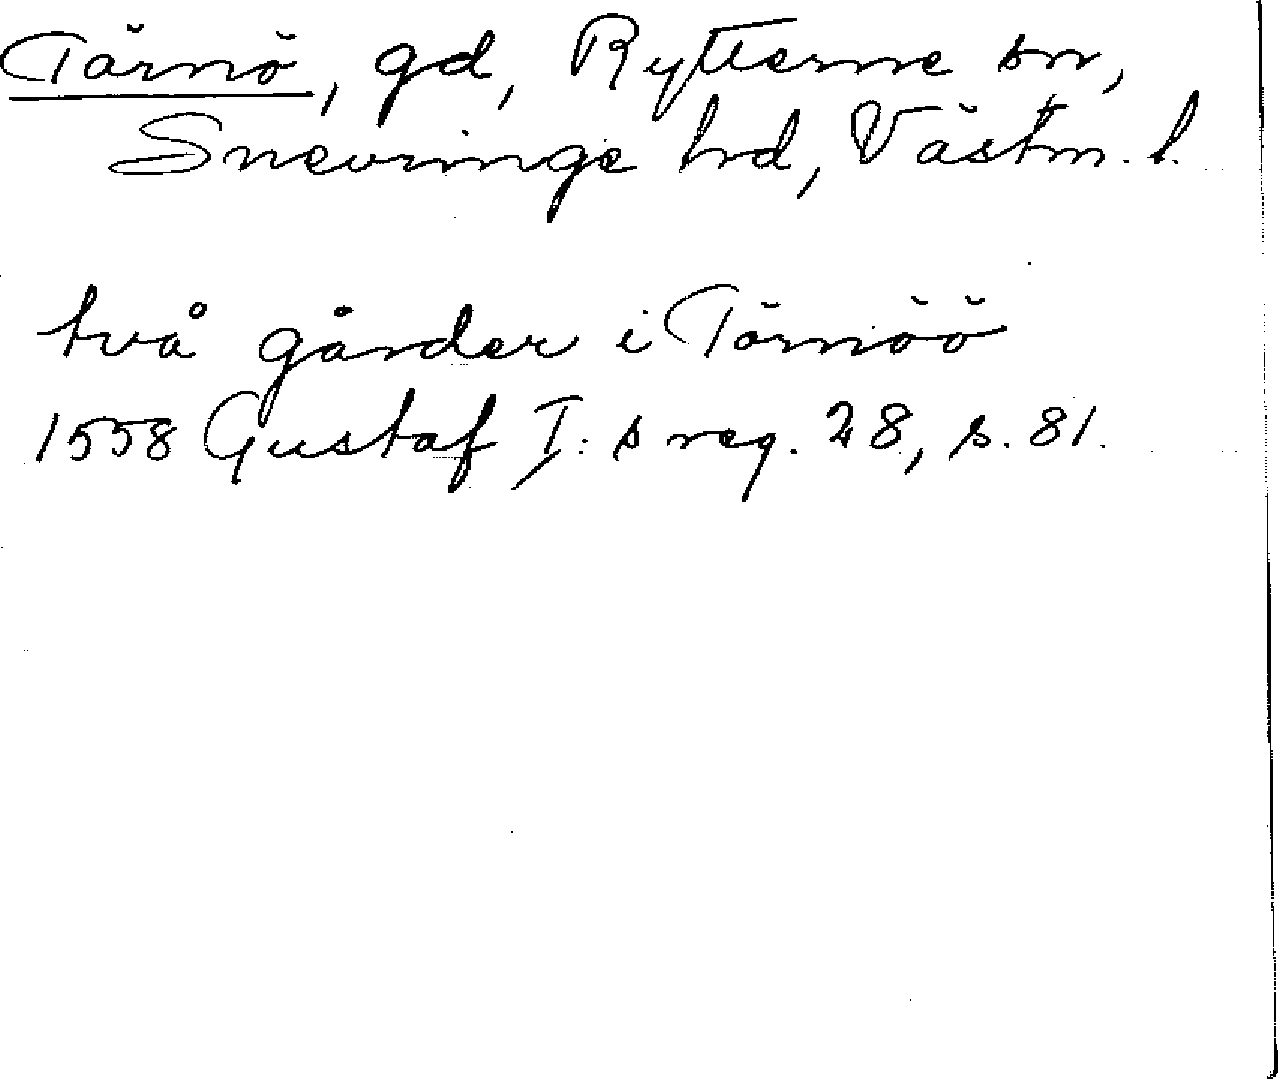 Tärnö, gd, Rytterne sn,
Snevringe hd, Västm. l.
två gårder i Törnöö
1558 Gustaf I:s reg. 28, s. 81.